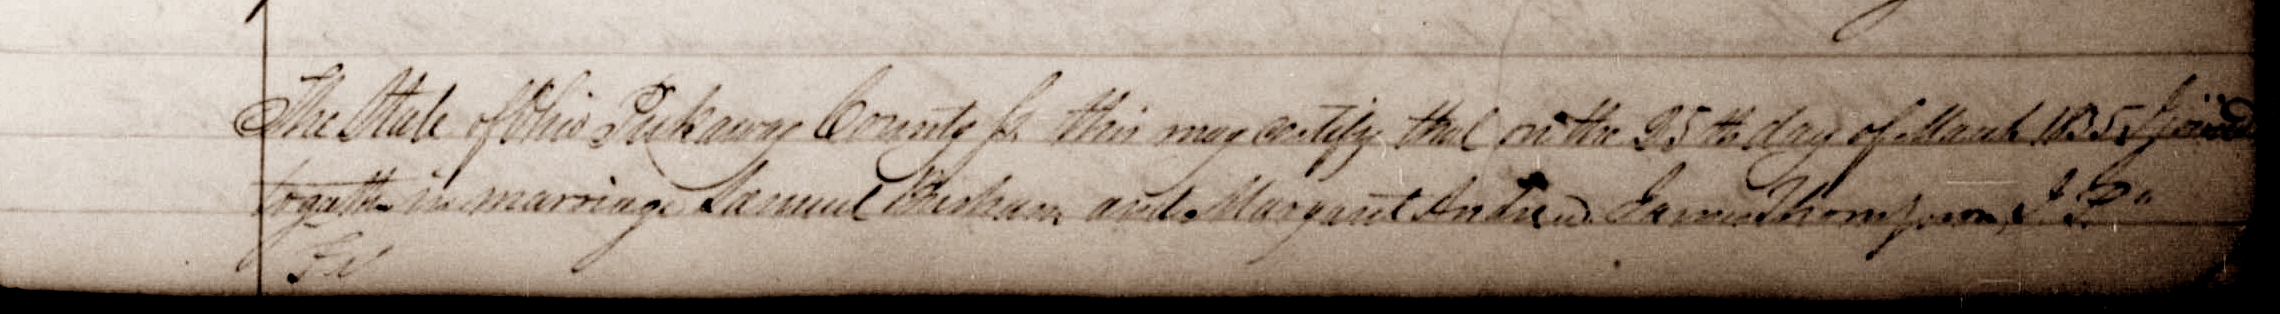 The State of Ohio Pickaway County ss. this may certify that on the 25th day of March 1835 I joined
together in marriage Samuel and Margaret Andrew. James Thompson, J. P.